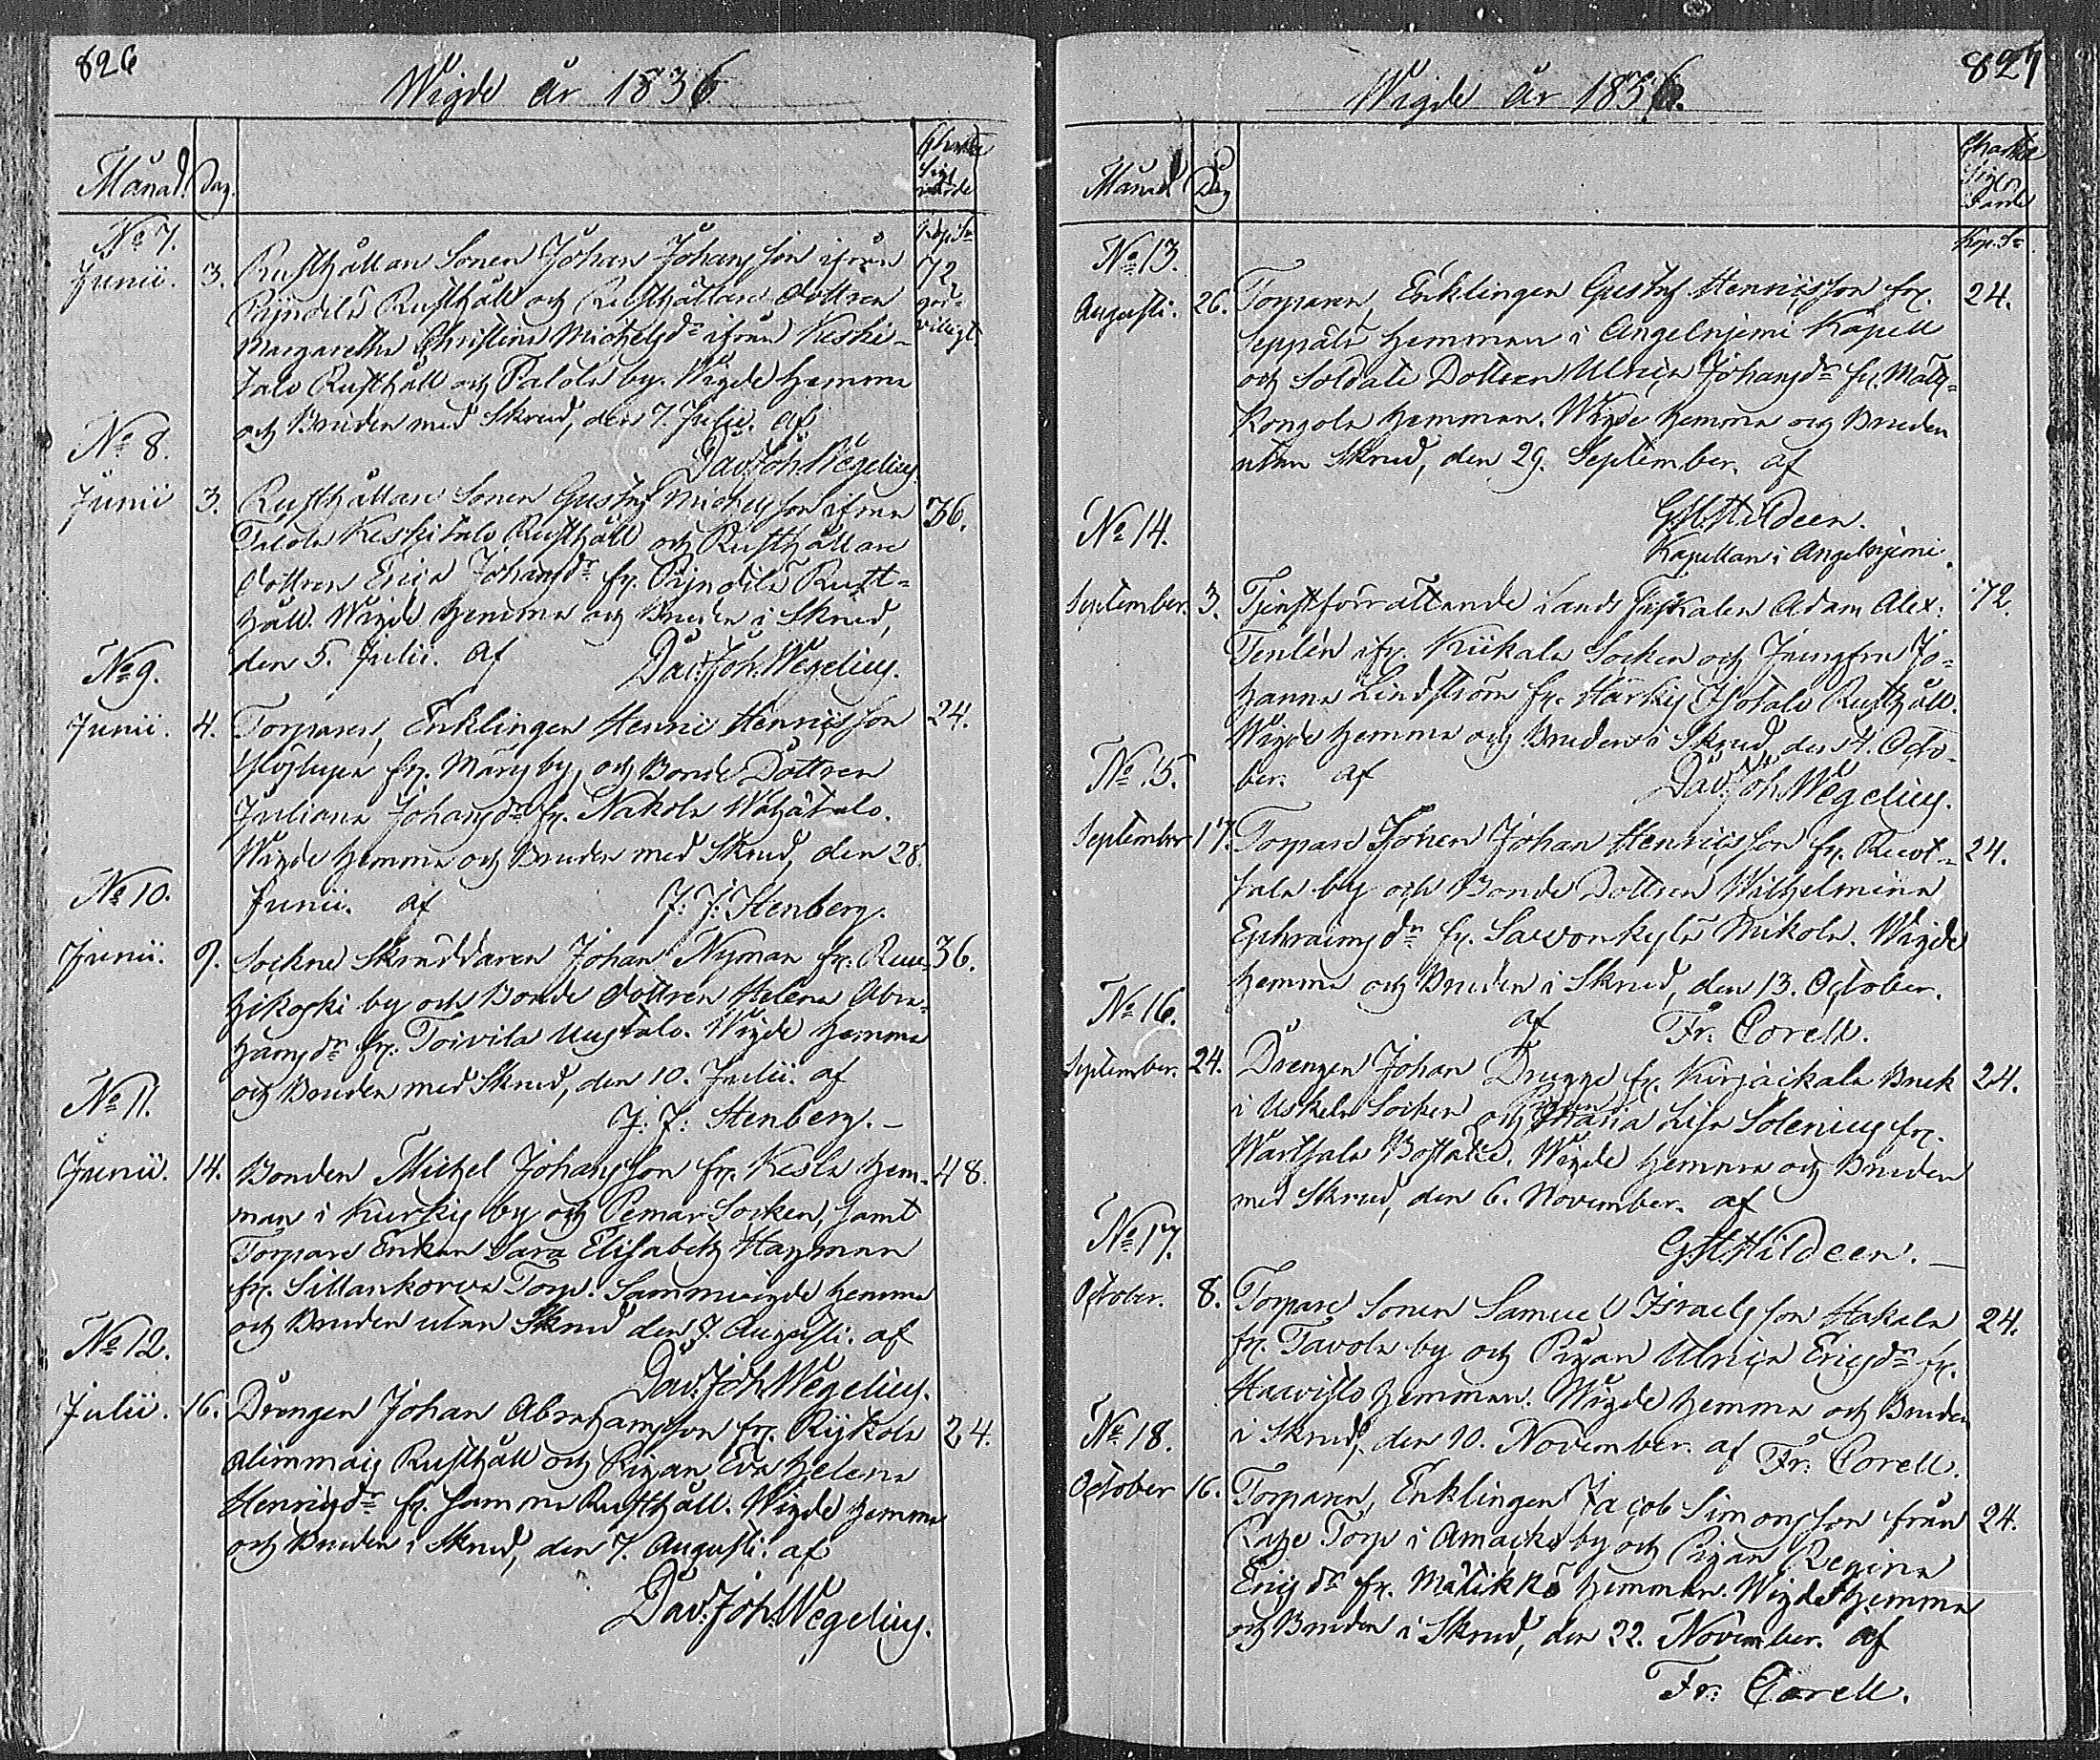 826
Wigde år 1836.
Månad. Dag.
No 7.
Kop. Sr
Junii. 3. Rusthållare Sonen Johan Johansson ifrån 72
Pyndilä Rusthåll och Rusthållare dottren god-
Margaretha Christina Michelsdr ifrån Keski- villigt
talo Rusthåll och Talola by. Wigde hemma
och Bruden med Skrud, den 7. Julii. af
Dav. Joh. Wegelius.
No 8.
Junii 3. Rusthållare Sonen Gustaf Michelsson ifrån 36.
Talola Keskitalo Rusthåll och Rusthållare
dottren Erica Johansdr fr. Pyndilä Rust-
håll. Wigde hemma och Bruden i Skrud,
den 5. Julii. af Dav. Joh. Wegelius.
No 9.
Junii. 4. Torparen, Enklingen Henric Henricsson 24.
fr. Märy by, och Bonde Dottren
Juliana Johansdr fr. Nakola Wähätalo.
Wigde hemma och Bruden med Skrud, den 28.
Junii. af J. J. Stenberg.
No 10.
Junii. 9. Sockne Skräddaren Johan Nyman fr. Ruu- 36.
hikoski by och Bonde dottren Helena Abra-
hamsdr fr. Toivila Uusitalo. Wigde hemma
och Bruden med Skrud, den 10. Julii. af
J. J. Stenberg. -
No 11.
Junii. 14. Bonden Michel Johansson fr. Kesla hem- 48.
man i Kurkis by och Pemar Socken, samt
Torpare Enkan Sara Elisabeth Hagman
fr. Sillankorwa Torp. Sammanvigde hemma
och Bruden utan Skrud den 7. Augusti. af
Dav. Joh. Wegelius.
No 12.
Julii. 16. Drengen Johan Abrahamsson fr. Rijkola 24.
Alimmais Rusthåll och Pigan Eva Helena
Henricsdr fr. samma Rusthåll. Wigde hemma
och Bruden i Skrud, den 7. Augusti. af
Dav. Joh. Wegelius.
827
Wigde år 1836.
Månad Dag
Kop. Sr
No 13.
Augusti. 26. Torparen, Enklingen Gustaf Henricsson fr. 24.
Seppälä hemman i Angelniemi Kapell
och Soldate Dottren Ulrica Johansdr fr. Mäly-
Kongola hemman. Wigde hemma och Bruden
utan Skrud, den 29. September. af
G. H. Hildeen.
Kapellan i Angelniemi.
No 14.
September. 3. Tjenstförrättande Lands Fiskalen Adam Alex. 72.
Tenlén ifr. Kiikala Socken och Jungfru Jo-
hanna Lindström fr. Härkis Isotalo Rusthåll.
Wigde hemma och Bruden i Skrud, den 4. Octo-
ber. af Dav. Joh. Wegelius.
No 15.
September 17. Torpare Sonen Johan Henricsson fr. Ruot- 24.
sala by och Bonde Dottren Wilhelmina
Ephraimsdr fr. Savonkylä Mikola. Wigde
hemma och Bruden i Skrud, den 13. October.
af Fr. Corell.
No 16.
September. 24. Drengen Johan Drugge fr. Kirjaikala Bruk 24.
i Uskela Socken och Pigan Maria Lisa Solenius fr.
Wartsala Boställe. Wigde hemma och Bruden
med Skrud, den 6. November. af
G. H. Hildeen. -
No 17.
October. 8. Torpare Sonen Samuel Israelsson Hakala 24.
fr. Tavola by och Pigan Ulrica Ericsdr fr.
Haavisto hemman. Wigde hemma och Bruden
i Skrud, den 10. November. af Fr. Corell.
No 18.
October 16. Torparen, Enklingen Jacob Simonsson från 24.
Torp i Amacke by och Pigan Regina
Ericsdr fr. Mälikkö hemman. Wigde hemma
och Bruden i Skrud, den 22. November. af
Fr. Corell.